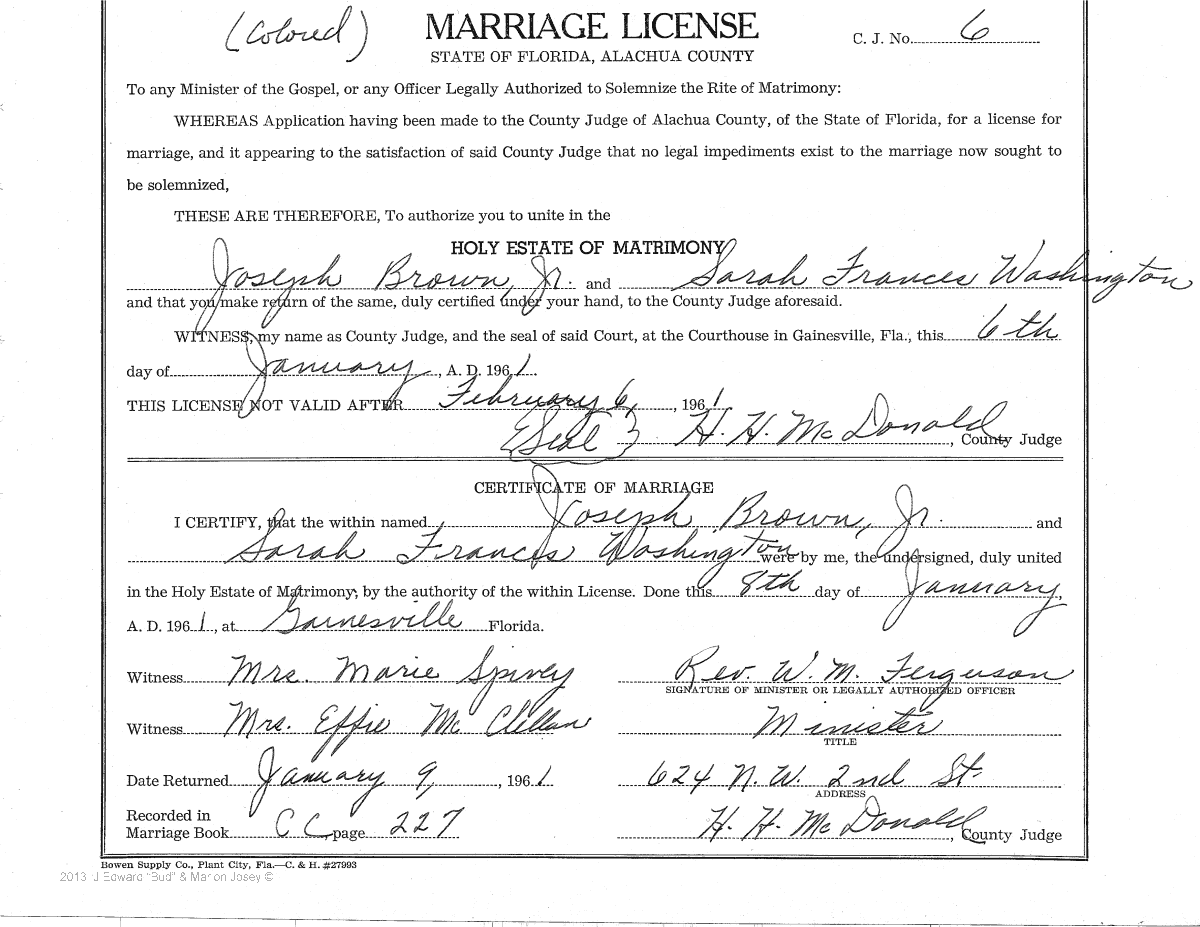 (Colored) MARRIAGE LICENSE C. J. No. 6
STATE OF FLORIDA, ALACHUA COUNTY
To any Minister of the Gospel, or any Officer Legally Authorized to Solemnize the Rite of Matrimony:
WHEREAS Application having been made to the County Judge of Alachua County, of the State of Florida, for a license for
marriage, and it appearing to the satisfaction of said County Judge that no legal impediments exist to the marriage now sought to
be solemnized,
THESE ARE THEREFORE, To authorize you to unite in the
HOLY ESTATE OF MATRIMONY
Joseph Brown, Jr. and Sarah Frances Washington
and that you make return of the same, duly certified under your hand, to the County Judge aforesaid.
WITNESS, my name as County Judge, and the seal of said Court, at the Courthouse in Gainesville, Fla., this 6th
day of January, A. D. 1961.
THIS LICENSE NOT VALID AFTER February 6, 1961
(Seal) H. H. McDonald, County Judge
CERTIFICATE OF MARRIAGE
I CERTIFY, that the within named Joseph Brown, Jr. and
Sarah Frances Washington were by me, the undersigned, duly united
in the Holy Estate of Matrimony, by the authority of the within License. Done this 8th day of January,
A. D. 1961, at Gainesville Florida.
Witness Mrs. Marie Spivey Rev. W. M. Ferguson
SIGNATURE OF MINISTER OR LEGALLY AUTHORIZED OFFICER
Witness Mrs. Effie McClellan Minister
TITLE
Date Returned January 9, 1961 624 N.W. 2nd St.
ADDRESS
Recorded in
Marriage Book CC page 227 H. H. McDonald, County Judge
Bowen Supply Co., Plant City, Fla.—C. & H. #27993
2013 J Edward "Bud" & Marion Josey ©